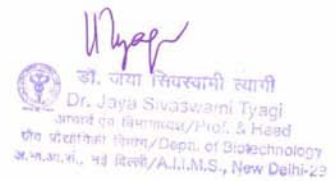 डॉ. जया सिवस्वामी त्यागी
Dr. Jaya Sivaswami Tyagi
आचार्य एवं विभागाध्यक्ष/Prof. & Head
जैव प्रौद्योगिकी विभाग/Depn. of Biotechnology
अ.भा.आ.सं., नई दिल्ली/A.I.I.M.S., New Delhi-29